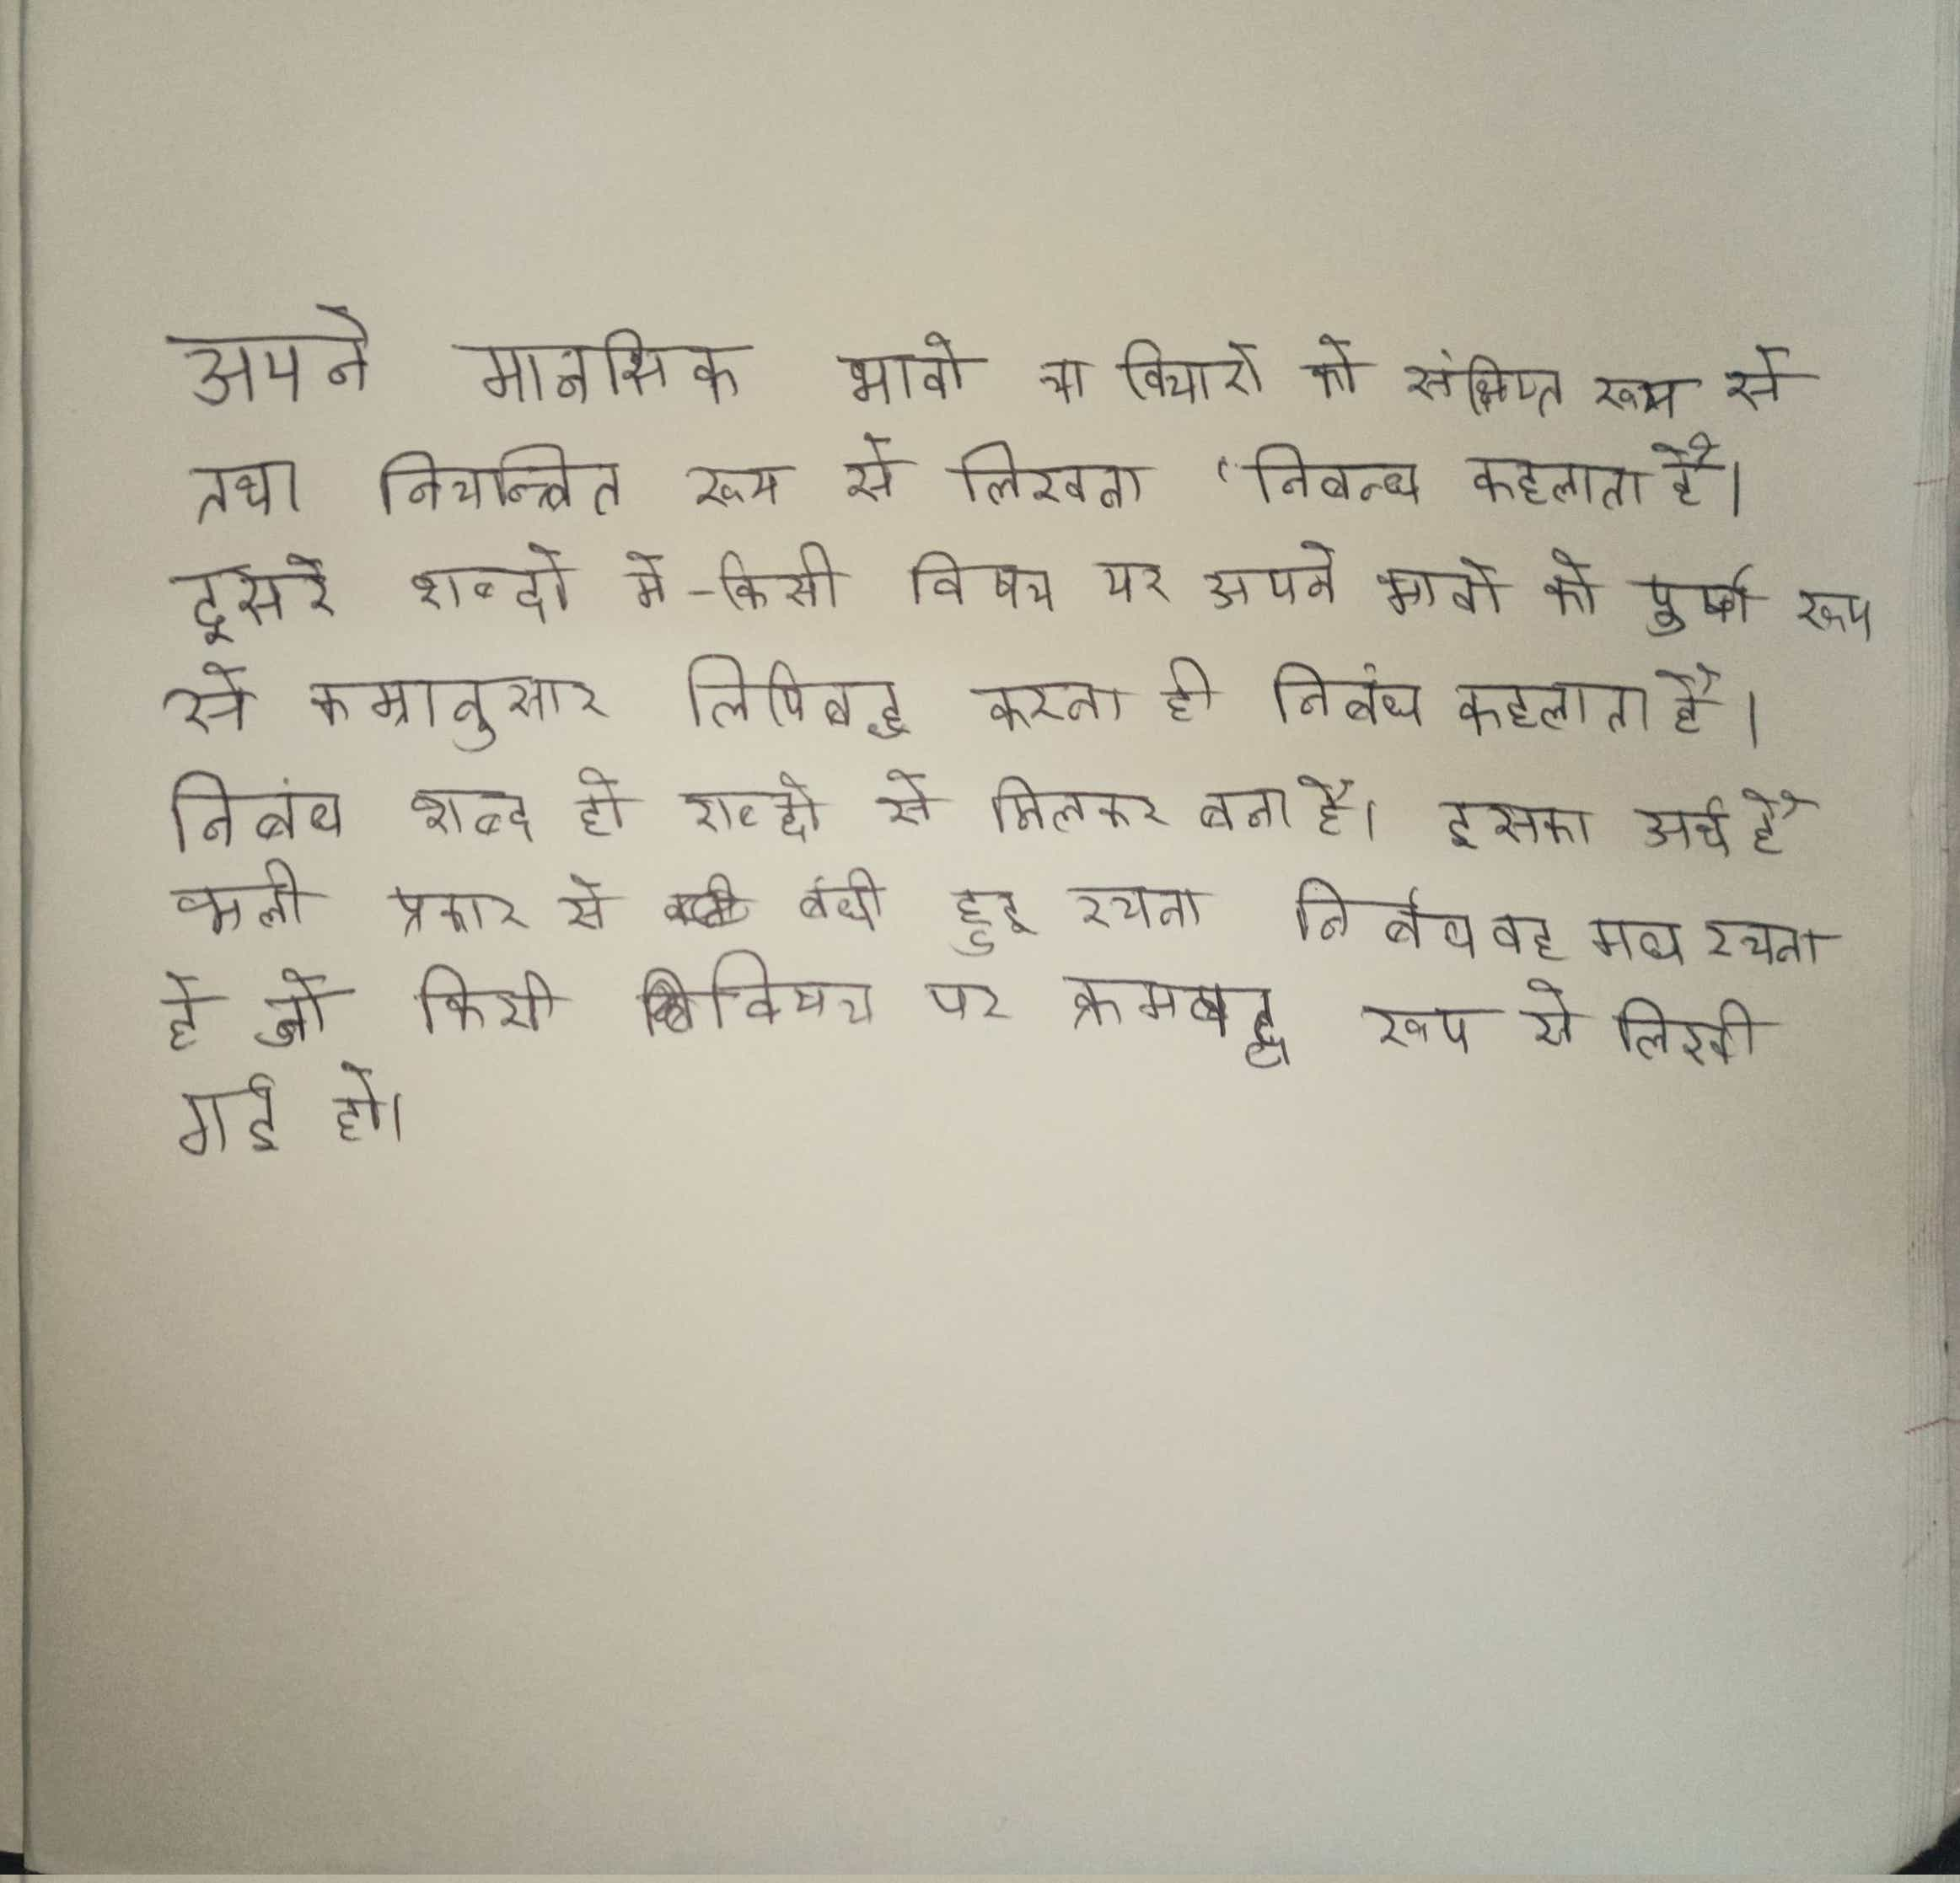 अपने मानसिक भावो या विचारों को संक्षिप्त रूप से
तथा नियन्त्रित रूप से लिखना 'निबन्ध कहलाता है।
दूसरे शब्दो मे -किसी विषय पर अपने भावों को पुर्ण रूप
से कम्रानुसार लिपिबद्ध करना ही निबंध कहलाता है।
निबंध शब्द दो शब्दो से मिलकर बना है। इसका अर्थ है
भली प्रकार से बंधी हुइ रचना निबंध वह गद्य रचना
है जो किसी विषय पर क्रमबद्ध रूप से लिखी
गई हो।